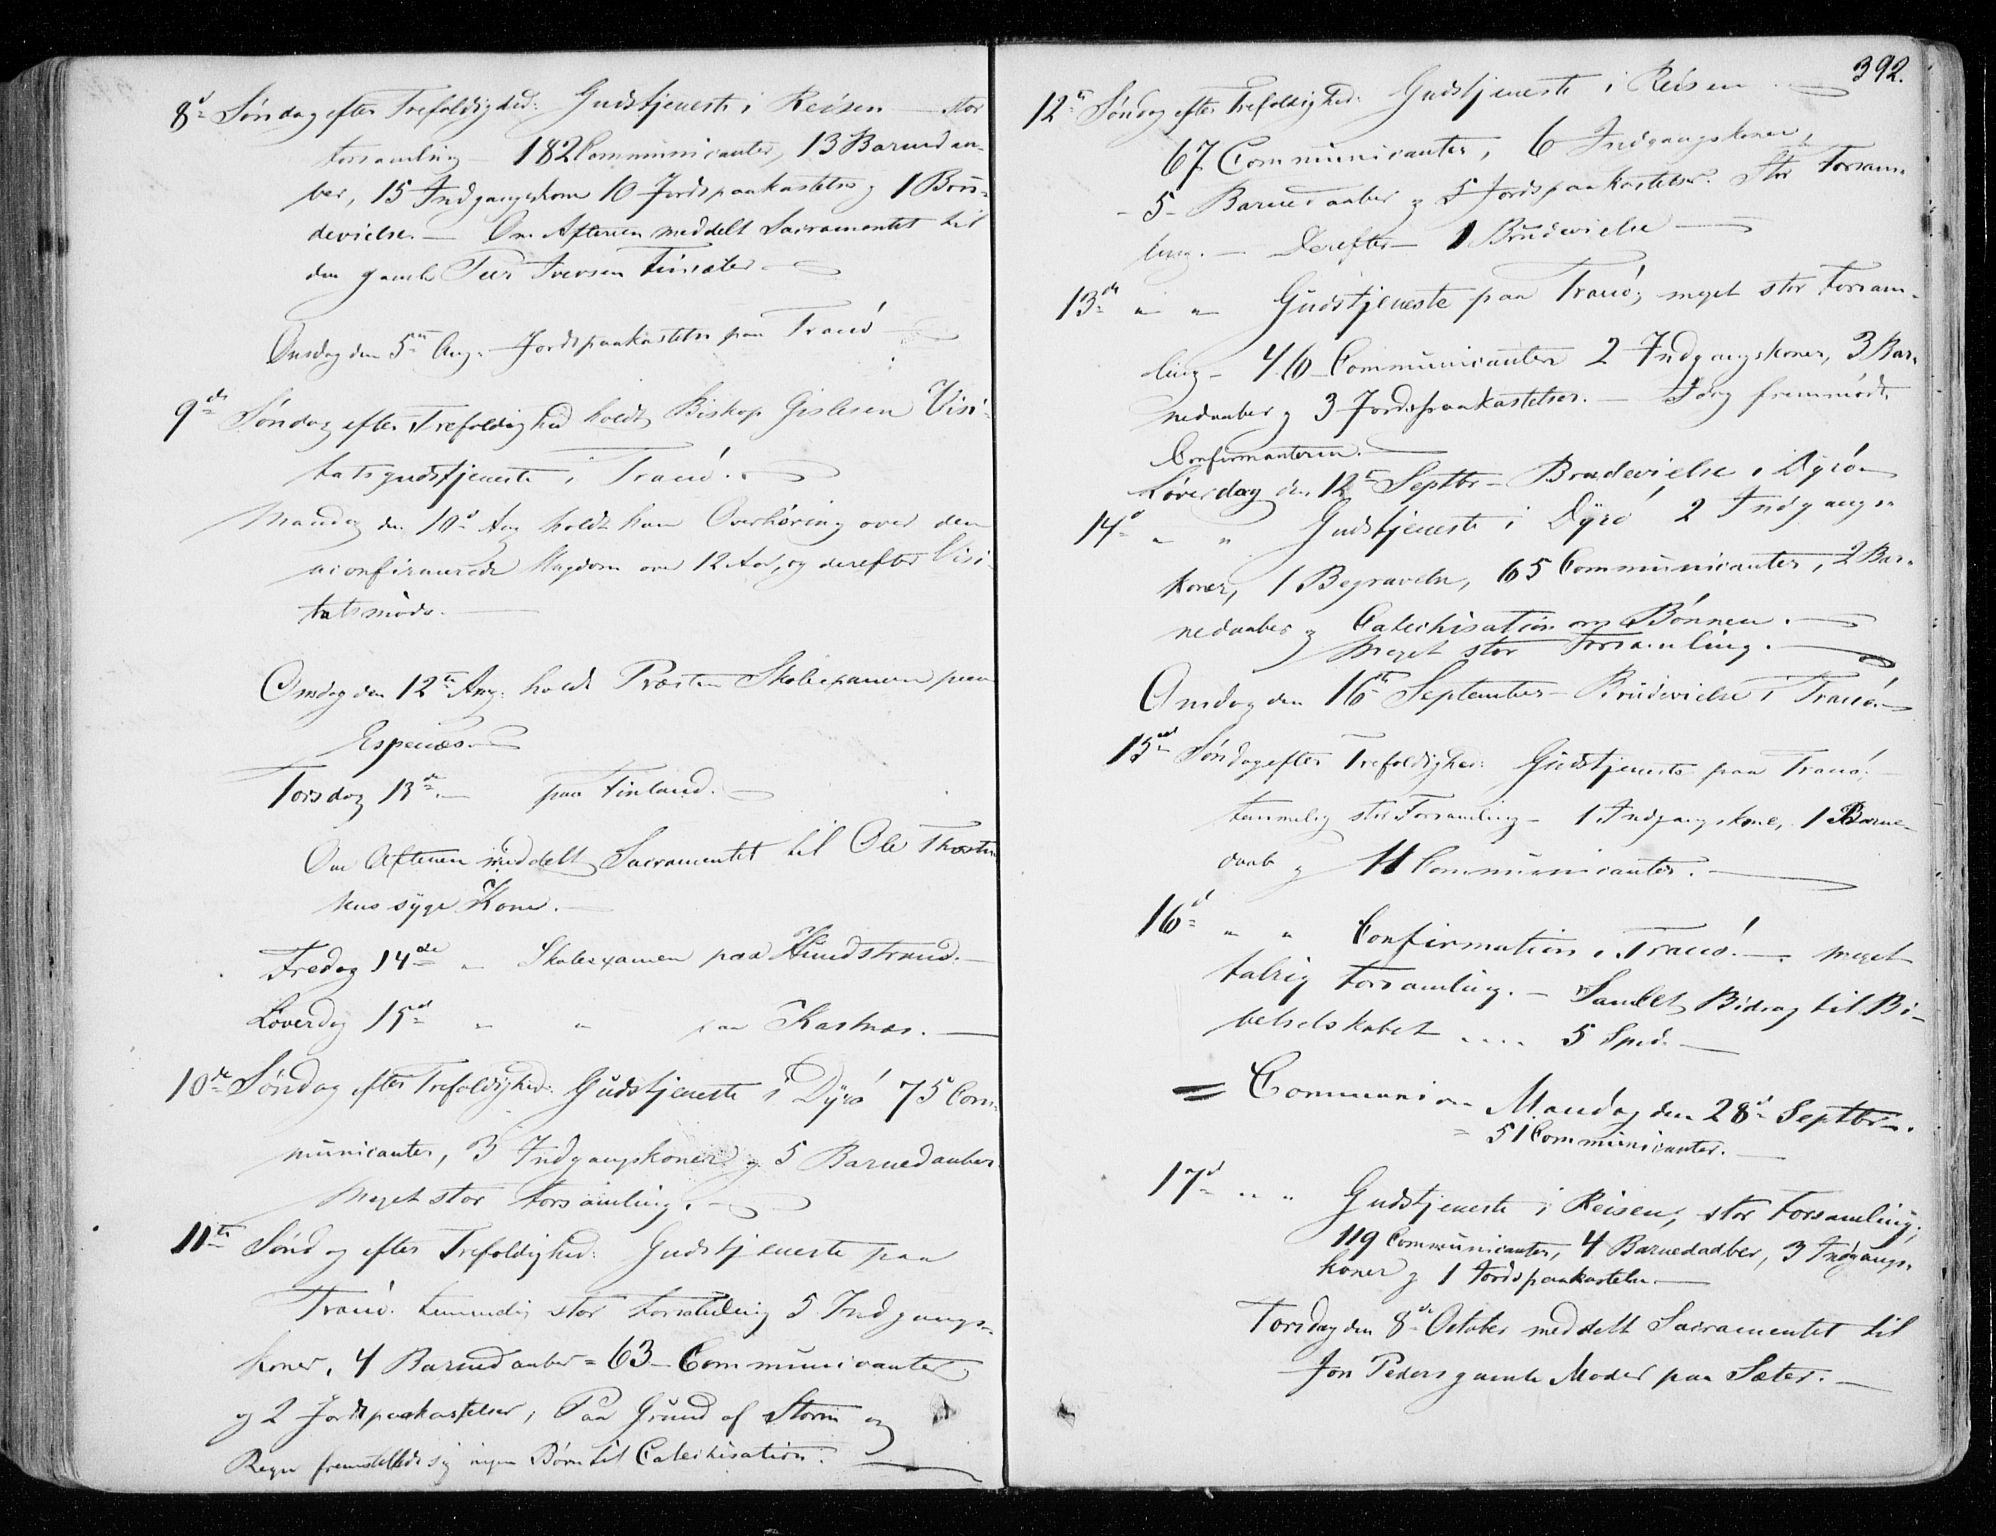 8d Søndag efter Trefoldighed: Gudstjeneste i Reisen stor
forsamling 182 Communicanter, 13 Barnedaa-
ber, 15 Indgangskone 10 Jordspaakastelse og 1 Bru-
devielse. — Om Aftenen meddelt Sacramentet til
den gamle Peer Iversen
Onsdag den 5te Aug. Jordspaakastelse paa Tranø
9de Søndag efter Trefoldighed holdt Biskop Gislesen Visi-
tatsgudstjeneste i Tranø.
Mandag den 10d Aug holdt han Overhøring over den
uconfirmerede Ungdom over 12 Aar, og derefter Visi-
tatsmøde.
Onsdag den 12te Aug: holdt Præsten Skoleexamen paa
Espenæs.
Torsdag 13de — paa Finland.
Om Aftenen meddelt Sacramentet til Ole
syge Kone.
Fredag 14de " Skolexamen paa Kundstrand.
Løverdag 15de " " paa Kastnæs.
10de Søndag efter Trefoldighed: Gudstjeneste i Dyrø 75 Com-
municanter, 3 Indgangskoner og 5 Barnedaaber.
Meget stor Forsamling.
11te Søndag efter Trefoldighed: Gudstjeneste paa
Tranø. temmelig stor Forsamling 5 Indgangs-
koner, 4 Barnedaaber = 63 Communicanter
og 2 Jordspaakastelser, Paa Grund af Storm og
Regn fremstillede sig ingen Børn til Catechisation.
392.
12te Søndag efter Trefoldighed: Gudstjeneste i Reisen
67 Communicanter, 6 Indgangskoner,
- 5 - Barnedaaber og 5 Jordspaakastelser. Stor Forsam-
ling. — Derefter — 1 Brudevielse
13de " " Gudstjeneste paa Tranø, meget stor Forsam-
ling — 46 Communicanter 2 Indgangskoner, 3 Bar-
nedaaber og 3 Jordspaakastelser. — Idag fremmødte
Confirmanterne.
Løverdag den 12te Septbr — Brudevielse i Dyrø
14d " " Gudstjeneste i Dyrø 2 Indgangs-
koner, 1 Begravelse, 65 Communicanter, 2 Bar-
nedaaber og Catechisation om Bønnen.
Meget stor Forsamling.
Onsdag den 16de September — Brudevielse i Tranø.
15de Søndag efter Trefoldighed: Gudstjeneste paa Tranø.
temmelig stor Forsamling — 1 Indgangskone, 1 Barne-
daab og 11 Communicanter.
16d " " Confirmation i Tranø. — meget
talrig Forsamling. — Samlet Bidrag til Bi-
belselskabet .... 5 Spd.
= Communion Mandag den 28d Septbr.
= 51 Communicanter.
17d " " Gudstjeneste i Reisen, stor Forsamling,
119 Communicanter, 4 Barnedaaber, 3 Indgangs-
koner og 1 Jordspaakastelse.
Torsdag den 8de October meddelt Sacramentet til
Jon Peders gamle Moder paa Sæter.